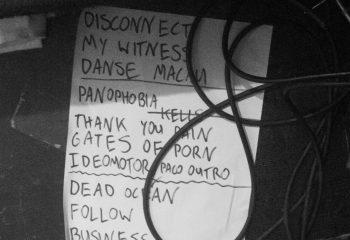 DISCONNECT
MY WITNESS
DANSE
PANOPHOBIA
THANK YOU PAIN
GATES OF PORN
IDEOMOTOR PACO OUTRO
DEAD OCEAN
FOLLOW
BUSINESS